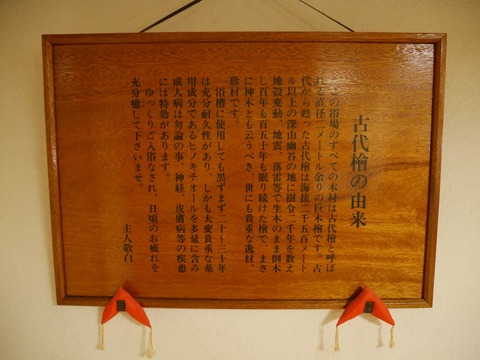 古代檜の由来
この浴場のすべての木材は古代檜と呼ば
れる直径二メートル余りの巨木檜です。古
代から甦った古代檜は海抜二千五百メート
ル以上の深山幽谷の地に樹令二千年を数え
地殻変動、地震、落雷等で生木のまま倒木
し百年も百五十年も眠り続けた檜で、まさ
に神木とも云うべき、世にも貴重な逸材、
珍材です。
浴槽に使用しても黒ずまず二十〜三十年
は充分耐久性があり、しかも大変貴重な薬
用成分であるヒノキチオールを多量に含み
成人病は勿論の事、神経、皮膚病等の疾患
には特効があります。
ゆっくりご入浴なされ、日頃のお疲れを
充分癒して下さいませ。
主人敬白